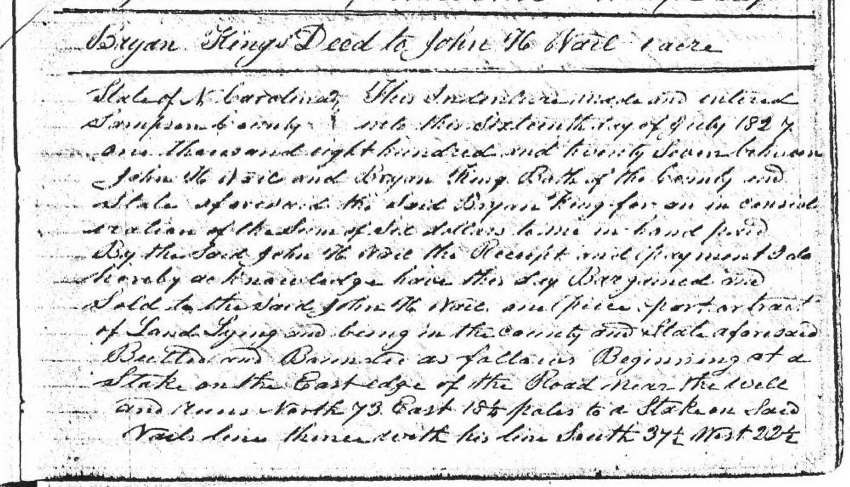 Bryan Kings Deed to John H Nail 1 acre
State of N Carolina } This Indenture made and entered
Sampson County } into this Sixteenth day of July 1827
one thousand eight hundred and twenty Seven between
John H Nail and Bryan King Both of the County and
State aforesaid the Said Bryan King for an in consid
eration of the Sum of Six dollars to me in hand paid
By the Said John H Nail the Receipt and payment I do
hereby acknowledge have this day Bargained and
Sold to the Said John H Nail one piece part or tract
of Land Lying and being in the county and State aforesaid
Butted and Bounded as follows Beginning at a
Stake on the East edge of the Road near the well
and runs North 73 East 18½ poles to a Stake on Said
Nails line thence with his line South 37½ West 22½